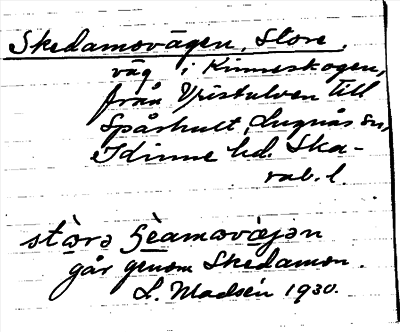 Skedamovägen, Store,
väg i Kinneskogen,
från Vristulven till
Spårhult, Lugnås sn,
Kinne hd. Ska-
rab. l.
stòrə ʃèamovæjən
går genom Skedamon.
L. Madsén 1930.